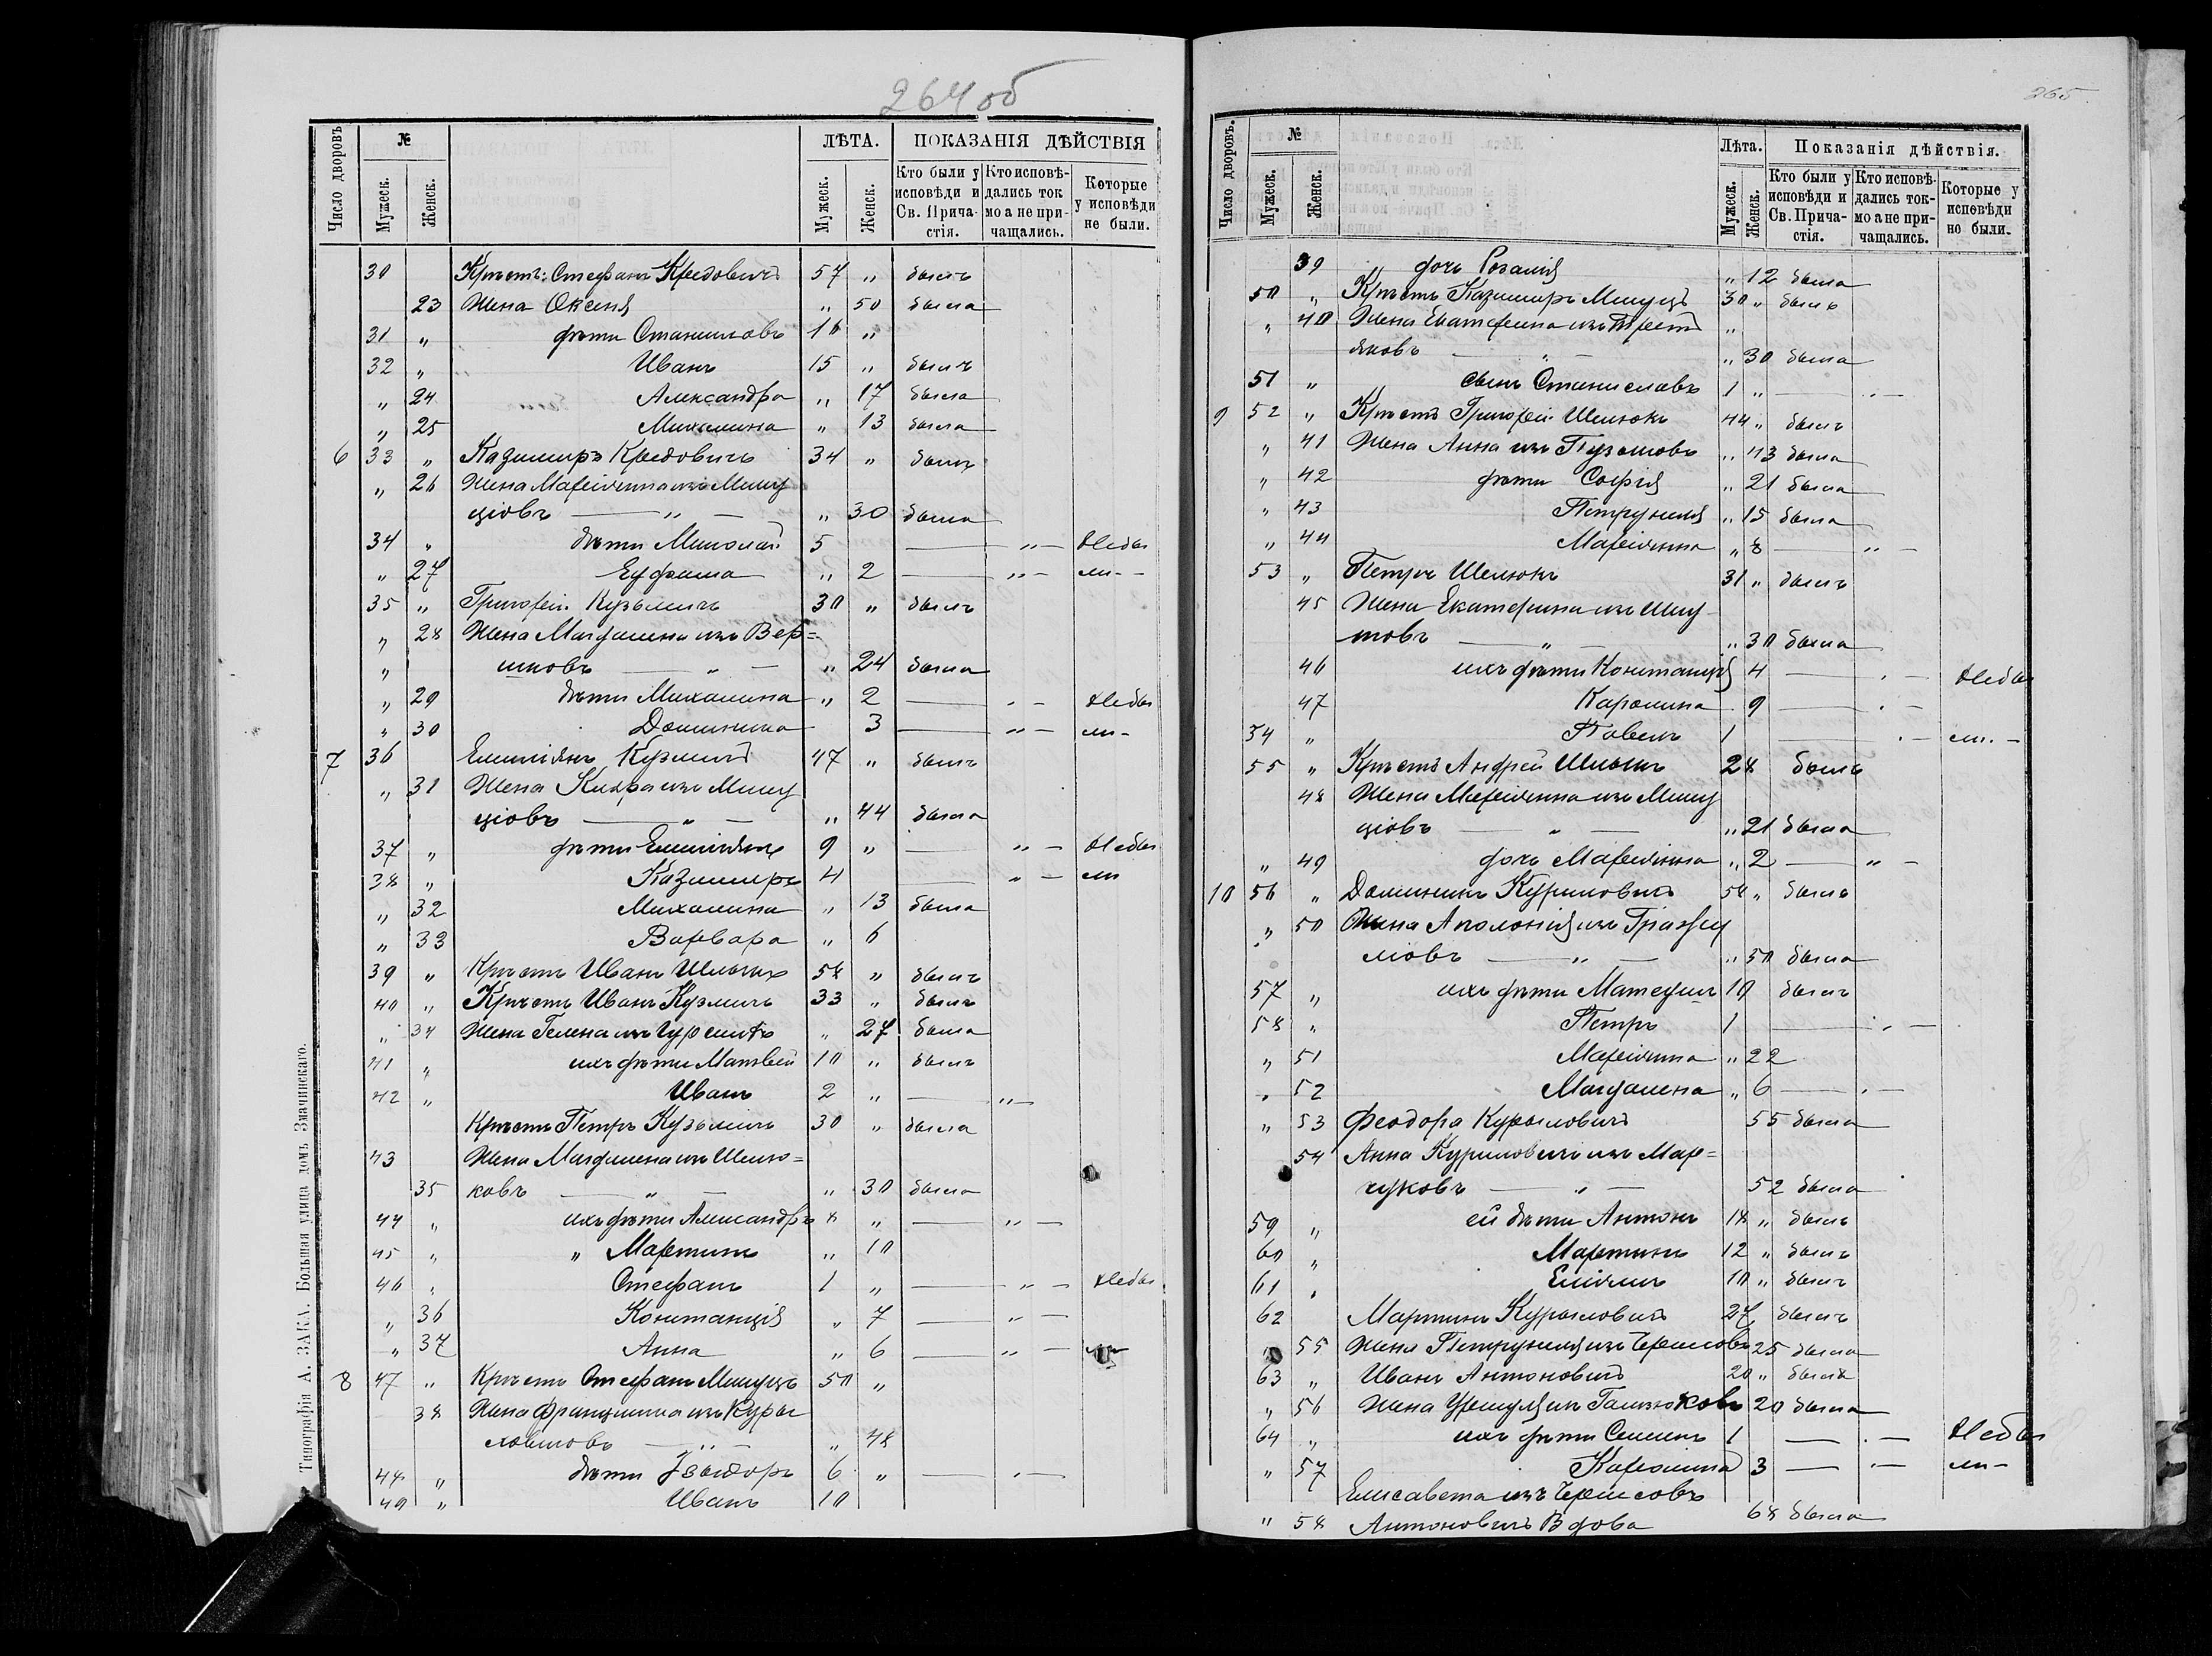 264 об
Число дворовъ
№
Мужеск.
Женск.
ЛѢТА.
Мужеск.
Женск.
ПОКАЗАНІЯ ДѢЙСТВІЯ
Кто были у исповѣди и Св. Прича- стія.
Кто исповѣ- дались ток мо а не при- чащались.
Которые у исповѣди не были.
30 Крѣст: Стефанъ 57 " былъ
23 Жена Оксенія " 50 была
31 " дѣти Станиславъ 16 "
32 " Иванъ 15 " былъ
" 24 Александра " 17 была
" 25 Михалина " 13 была
6 33 " Казимиръ 34 " былъ
" 26 Жена Маріянна изъ Мину
ціовъ — " — " 30 была
34 " дѣти Николай 5 — " — Небы
" 27 " 2 — " — ли -
35 " Григорій Кузьмичъ 30 " былъ
" 28 Жена Магдалена изъ Вер=
" " — " 24 была
" 29 дѣти Михалина " 2 — " — Небы
" 30 Доминика 3 — " — ли -
7 36 Емиліянъ Кузмичъ 47 " былъ
" 31 Жена изъ Мину
ціовъ — " — " 44 была
37 " дѣти Емиліянъ 9 " — " — Небы
38 " Казимиръ 4 — " — ли
" 32 Михалина " 13 была
" 33 Варвара " 6
39 " Крѣст Иванъ 58 " былъ
40 " Крѣст Иванъ Кузмичъ 33 " былъ
" 34 Жена Гелена изъ " 27 была
41 " ихъ дѣти Матвей 10 " былъ
42 " Иванъ 2 " — " —
Крѣст Петръ Кузьмичъ 30 " была
43 Жена Магдалена изъ Шелю=
35 ковъ — " — " 30 была
44 " ихъ дѣти Александръ 8 " — " —
45 " " Мартинъ " 10
46 " Стефанъ 1 " — " — Небы
" 36 Констанція " 7 — " —
" 37 Анна " 6 — " — ли
8 47 " Крѣст Стефанъ Минуцъ 50 "
38 Жена Францишка изъ Куры
— " — " 48
48 " дѣти 6 " — " —
49 " Иванъ 10
Типографія А. ЗАКА. Большая улица домъ Змачинскаго.
265
Число дворовъ.
№
Мужеск.
Женск.
Лѣта.
Мужеск.
Женск.
Показанія дѣйствія.
Кто были у исповѣди и Св. Прича- стія.
Кто исповѣ- дались ток- мо а не при- чащались.
Которые у исповѣди но были.
39 дочь Розалія " 12 была
50 " Крѣст Казимиръ Минуцъ 30 " былъ
" 40 Жена Екатерина изъ Трет "
яковъ — " — " 30 была
51 " сынъ Станиславъ 1 " — " —
9 52 " Крѣст Григорій Шелюкъ 44 " былъ
" 41 Жена Анна изъ " 43 была
" 42 дѣти Софія " 21 была
" 43 Петрунеля " 15 была
" 44 Маріянна " 8 — " —
53 " Петръ Шелюкъ 31 " былъ
45 Жена Екатерина изъ
— " — " 30 была
46 ихъ дѣти Констанція 4 — " — Небы
47 Каролина 9 — " —
54 " Павелъ 1 — " — ли. -
55 " Крѣст Андрей 28 былъ
48 Жена Маріянна изъ Мину
ціовъ — " — " 21 была
" 49 дочь Маріянна " 2 — " —
10 56 " Доминикъ Куриловичъ 58 " былъ
" 50 Жена Аполонія изъ
— " — " 50 была
57 " ихъ дѣти 10 былъ
58 " Петръ 1 — " —
" 51 Маріянна " 22
" 52 Магдалена " 6 — " —
" 53 Феодора Курыловичъ 55 была
54 Анна Куриловичъ изъ Мар=
чуковъ — " — 52 была
59 " ей дѣти Антонъ 18 " былъ
60 " Мартинъ 12 " былъ
61 " 10 " былъ
62 Мартинъ Курыловичъ 27 былъ
" 55 Жена Петрунеля изъ 25 была
63 " Иванъ Антоновичъ 20 " былъ
" 56 Жена Уршуля изъ 20 была
64 " ихъ дѣти Семенъ 1 — " — Небы
" 57 Каролина 3 — " — ли -
Елисавета изъ
" 58 Антоновичъ Вдова 68 была